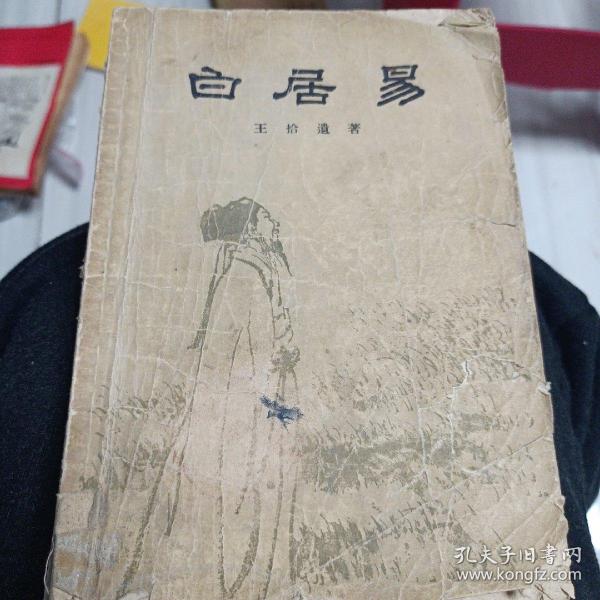 白居易
王拾遺著
孔夫子旧书网
www.kongfz.com